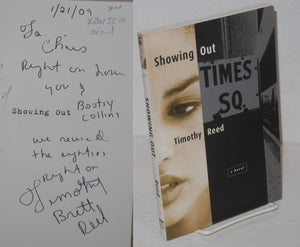 1/21/09
To
Chris
Right on
you &
Showing Out Bootsy
Collins
we
the eighties
Right on
Timothy
Brett
Reed
Showing Out
TIMES
SQ.
Timothy Reed
a Novel
SHOWING OUT
REED